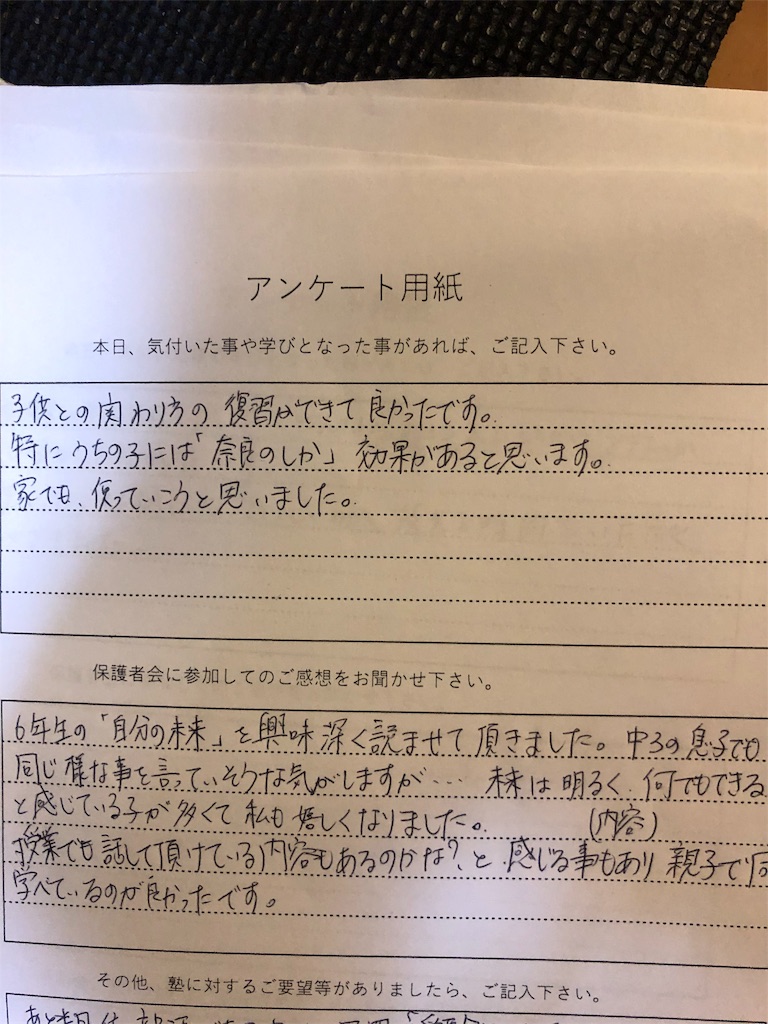 アンケート用紙
本日、気付いた事や学びとなった事があれば、ご記入下さい。
子供との関わり方の復習ができて良かったです。
特にうちの子には「奈良のしか」効果があると思います。
家でも、使っていこうと思いました。
保護者会に参加してのご感想をお聞かせ下さい。
6年生の「自分の未来」を興味深く読ませて頂きました。中3の息子でも
同じ様な事を言っていそうな気がしますが…. 未来は明るく、何でもできる
と感じている子が多くて私も嬉しくなりました。 (内容)
授業でも話して頂けている内容もあるのかな?と感じる事もあり親子で同
学べているのが良かったです。
その他、塾に対するご要望等がありましたら、ご記入下さい。